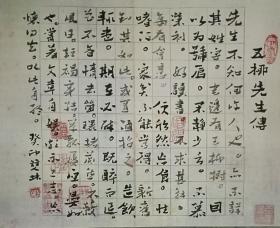 五柳先生傳
先生不知何許人也亦不詳
其姓字宅邊有五柳樹因
以為號焉閑靜少言不慕
榮利好讀書不求甚解
每有會意欣然忘食性
嗜酒家貧不能常得親舊
知其如此或置酒招之造飲
輒盡期在必醉既醉而
吝情去留環堵蕭然不蔽
風日短褐穿結簞瓢屢空晏如
也常著文章自娛頗示己志忘
懷得失以此自終 癸